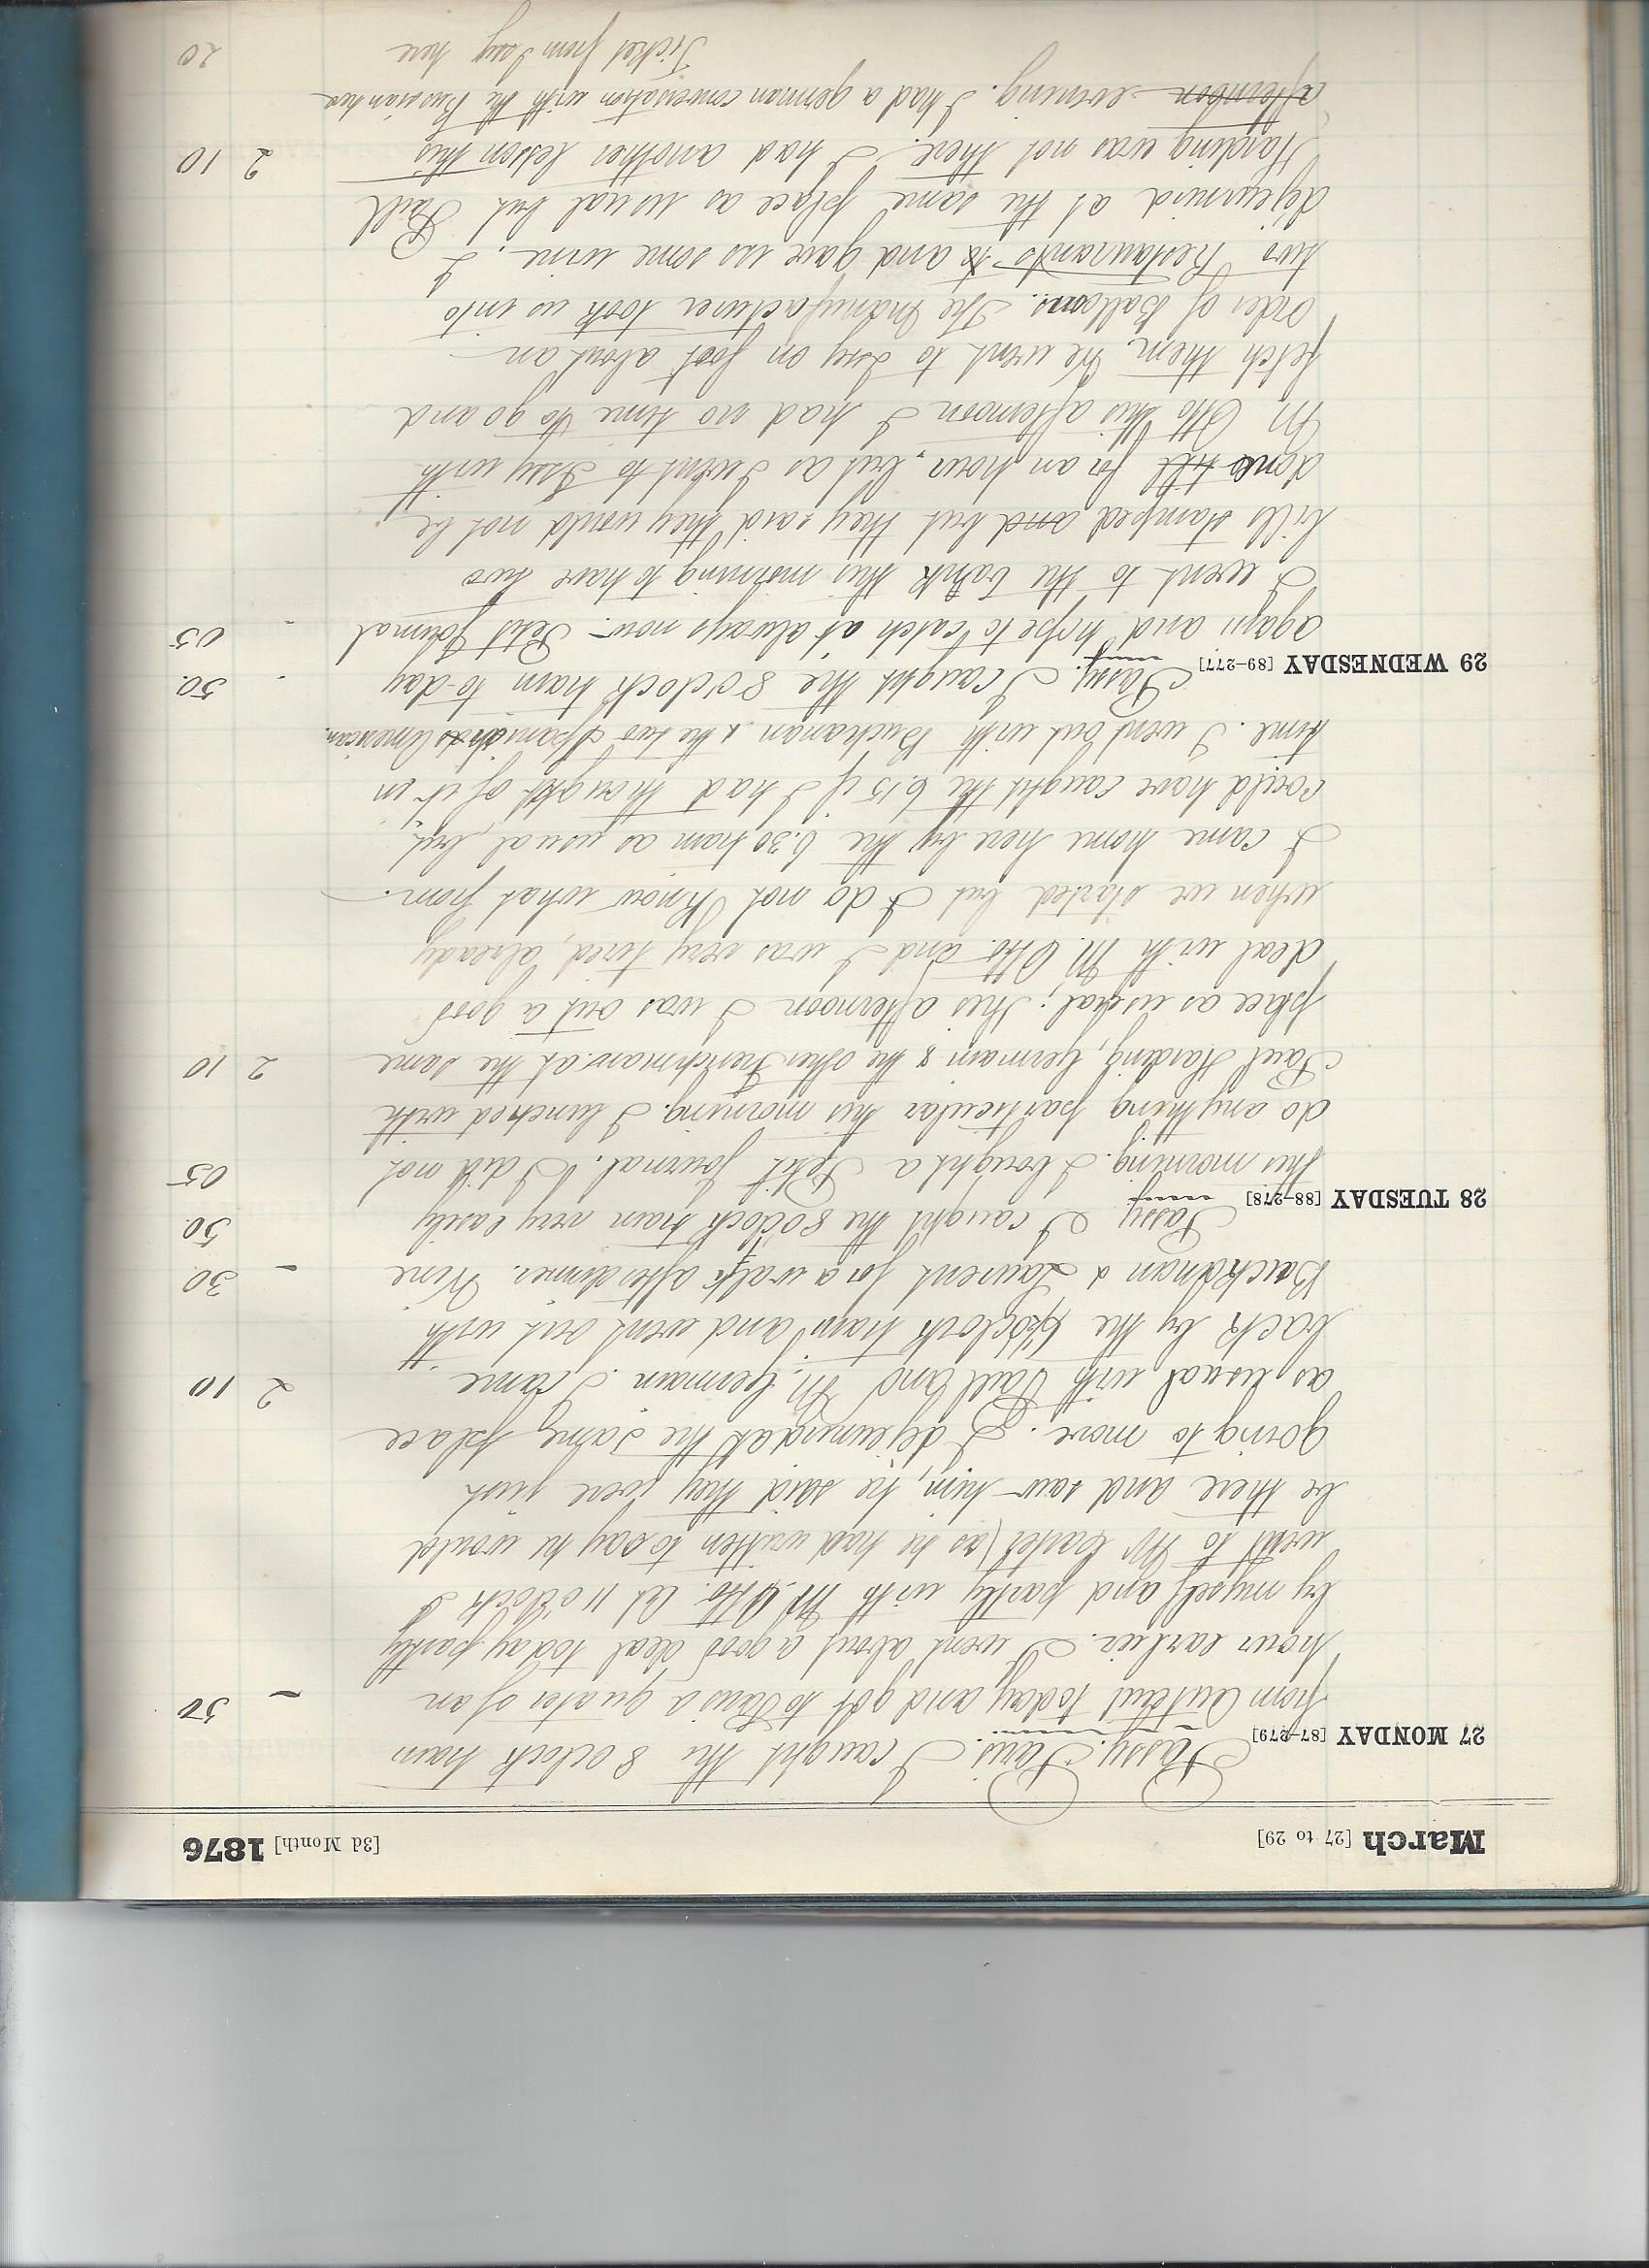 March [27 to 29] [3d Month] 1876
27 MONDAY [87-279] Passy. Paris. I caught the 8 oclock train
from Auteuil today and got to Paris a quater of an - 50
hour earlier. I went about a good deal today partly
by myself and partly with M. Otto. At 11 o'clock I
went to Mr (as he had written to say he would
be there and saw him, he said they were just
going to move. I dejeunéd at the same place
as usual with Paul and M. Germain. I came 2 10
back by the 6 oclock train and went out with
Buckanan & Laurent for a walk after dinner. Wine - 30
28 TUESDAY [88-278] Passy I caught the 8 oclock train very easily 50
this morning. I bought a Petit Journal. I did not 05
do anything particular this morning. I lunched with
Paul Harding, Germain & the other Frenchman at the same 2 10
place as usual; this afternoon I was out a good
deal with M. Otto and I was very tired, already
when we started but I do not know what from.
I came home here by the 6.30 train as usual, but
could have caught the 6.15 if I had thought of it in
time. I went out with Buchanan & the two Spaniards American.
29 WEDNESDAY [89-277] Passy. I caught the 8 o'clock train to-day - 50
again and hope to catch it always now. Petit Journal - 05
I went to the bank this morning to have two
bills stamped and but they said they would not be
done till for an hour, but as I went to Issy with
M Otto this afternoon I had no time to go and
fetch them. We went to Issy on foot about an
order of Balloons. The Manufacturer took us into
two Restaurants to and gave us some wine. I
dejeunéd at the same place as usual but Paul
Harding was not there. I had another lesson this 2 10
afternoon evening. I had a german conversation with the Russian here
Ticket from Issy here 20